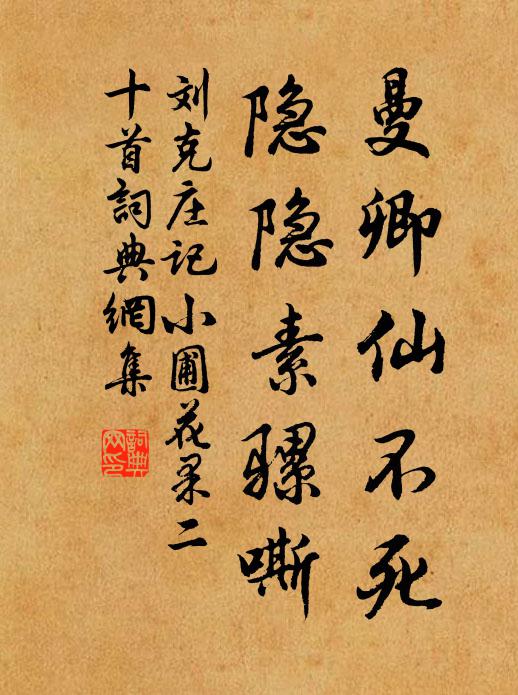 曼卿仙不死
隐隐素骡嘶
刘克庄记小圃花果二
十首詞典網集
詞典
网印